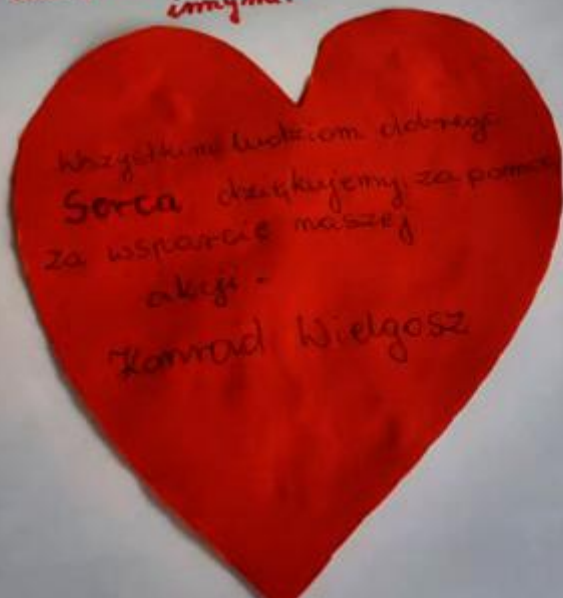 innym.
Wszystkim ludziom dobrego
Serca dziękujemy, za pomoc
za wsparcie naszej
akcji -
Konrad Wielgosz